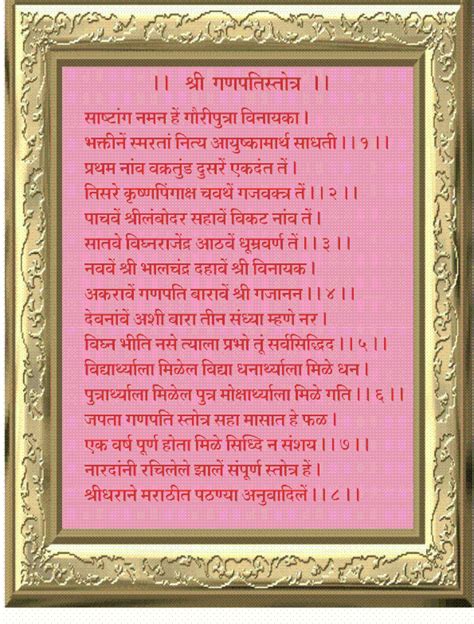 ।। श्री गणपतिस्तोत्र ।।
साष्टांग नमन हें गौरीपुत्रा विनायका।
भक्तीनें स्मरतां नित्य आयुष्कामार्थ साधती।।१।।
प्रथम नांव वक्रतुंड दुसरें एकदंत तें।
तिसरे कृष्णपिंगाक्ष चवथें गजवक्त्र तें।।२।।
पाचवें श्रीलंबोदर सहावें विकट नांव तें।
सातवे विघ्नराजेंद्र आठवें धूम्रवर्ण तें।।३।।
नववें श्री भालचंद्र दहावें श्री विनायक।
अकरावें गणपति बारावें श्री गजानन।।४।।
देवनांवें अशी बारा तीन संध्या म्हणे नर।
विघ्न भीति नसे त्याला प्रभो तूं सर्वसिद्धिद।।५।।
विद्यार्थ्याला मिळेल विद्या धनार्थ्याला मिळे धन।
पुत्रार्थ्याला मिळेल पुत्र मोक्षार्थ्याला मिळे गति।।६।।
जपता गणपति स्तोत्र सहा मासात हे फळ।
एक वर्ष पूर्ण होता मिळे सिध्दि न संशय।।७।।
नारदांनी रचिलेले झालें संपूर्ण स्तोत्र हें।
श्रीधराने मराठीत पठण्या अनुवादिलें।।८।।